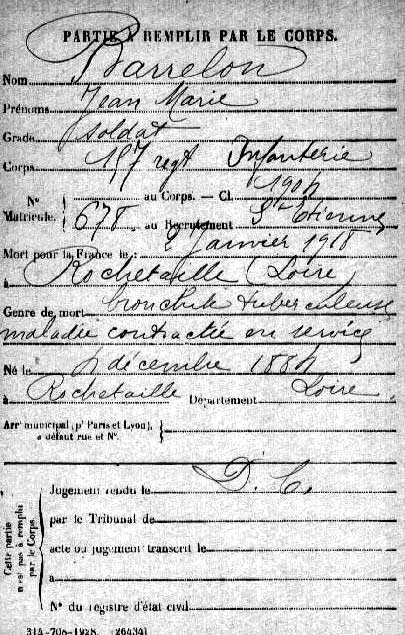 PARTIE À REMPLIR PAR LE CORPS.
Nom Barrelon
Prénoms Jean Marie
Grade soldat
Corps 157 regt Infanterie
N° Matricule. { au Corps. — Cl. 1904
678 au Recrutement St Etienne
Mort pour la France le : 2 Janvier 1918
à Rochetaille (Loire)
Genre de mort bronchite tuberculeuse
maladie contractée en service
Né le décembre 1884
à Rochetaille Département Loire
Arrt municipal (pr Paris et Lyon), à défaut rue et N°.
D. C.
Cette partie n'est pas à remplir par le Corps.
Jugement rendu le
par le Tribunal de
acte ou jugement transcrit le
à
N° du registre d'état civil
314-708-1928. [26434]